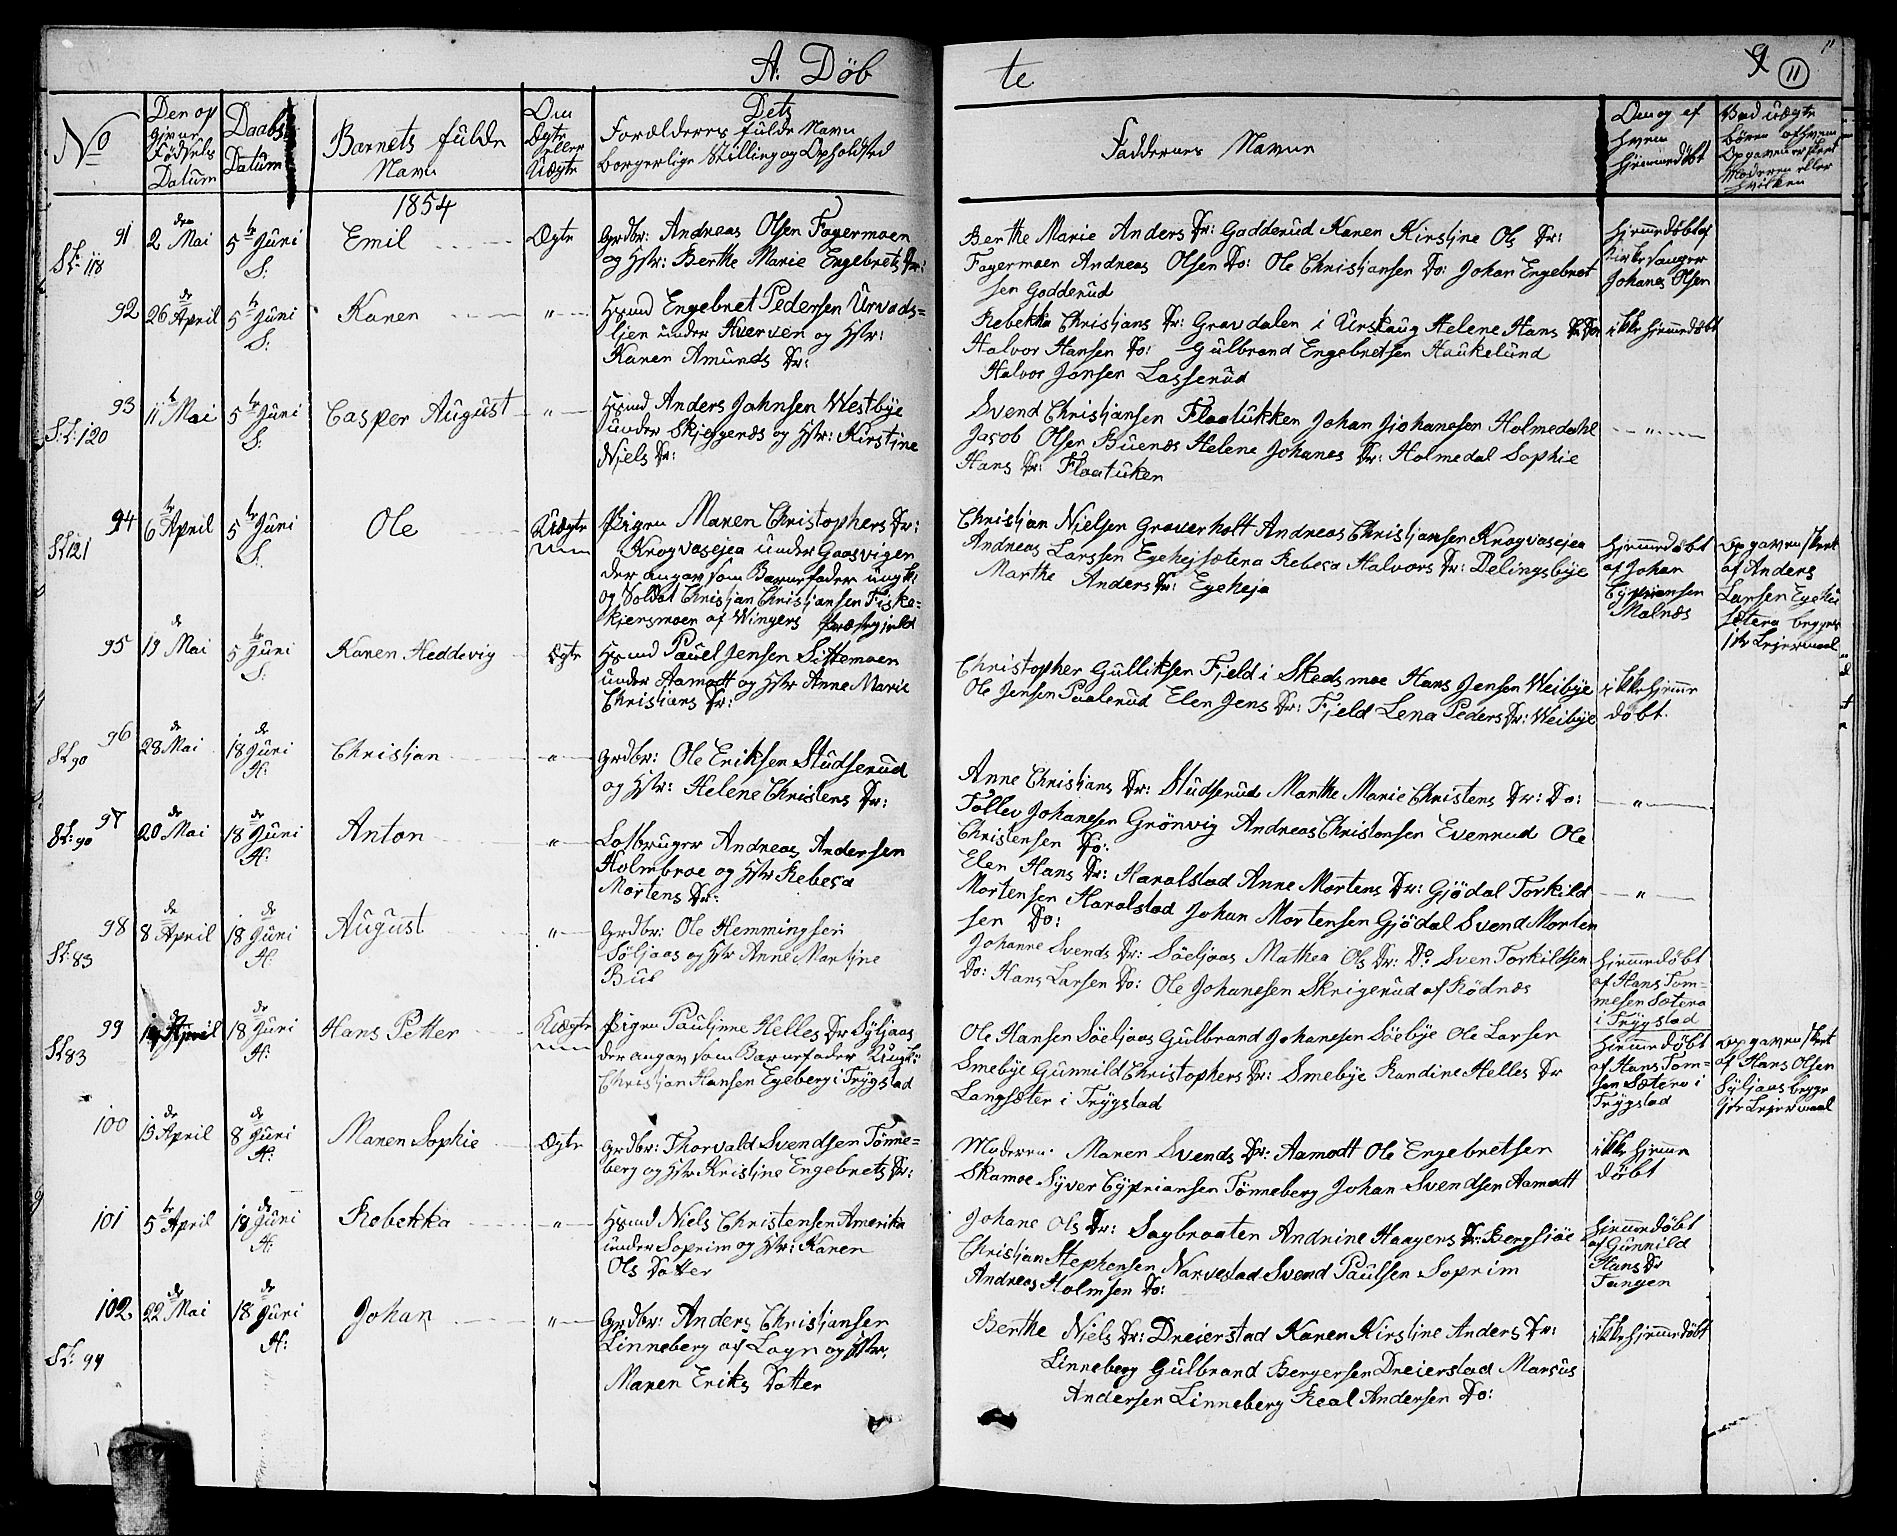 A: Döb
te
9
11
No
Den op
givne
Födsels
Datum
Daabs
Datum
Barnets fulde
Navn
Om
Ægte
eller
Uægte
Dets
Forældernes fulde Navn
borgerlige Stilling og Opholdsted
Faddernes Navne
Om og af
hvem
hjemmedöbt
Ved uægte
börn af hvem
Opgaven er skeet
Moderen eller
hvilken
1854
91
Sk: 118
den
2 Mai
5te Juni
S:
Emil
Ægte
Grdbr: Andreas Olsen Fagermoen
og Hstr: Berthe Marie Engebrets Dr:
Berthe Marie Anders Dr: Godderud Karen Kirstine Ols Dr:
Fagermoen Andreas Olsen Do: Ole Christiansen Do: Johan Engebret
sen Godderud
hjemmedöbt af
Kirkesanger
Johanes Olsen
92
de
26 April
5te Juni
S:
Karen
"
Hsmd Engebret Pedersen Urvads=
lien under Kverven og Hstr:
Karen Amunds Dr:
Rebekka Christians Dr: Gravdalen i Urskaug Helene Hans Dr: Do:
Halvor Hansen Do: Gulbrand Engebretsen Haukelund
Halvor Jonsen Lasserud
ikke hjemmedöbt
93
Sk: 120
11te Mai
5te Juni
S:
Casper August
"
Hsmd Anders Johnsen Westbye
under Skjesgenæs og Hstr: Kirstine
Niels Dr:
Svend Christiansen Flaatukken Johan Johanesen Holmedahl
Jacob Olsen Buenæs Helene Johanes Dr: Holmedal Sophie
Hans Dr: Flaatuken
"
94
Sk 121
6te April
5te Juni
S.
Ole
Uægte
Pigen Maren Christophers Dr:
Krogvasejea under Gaasvigen
der angav som Barnefader ungk:
og Soldat Christian Christiansen Fiske=
kjensmoen af Wingers Præstegjeld
Christian Nielsen Graverholt Andreas Christiansen Krogvasejea
Andreas Larssen Egehejsætera Rebeca Halvors Dr: Delingsbye
Marthe Anders Dr: Egeheja
hjemmedöbt
af Johan
Cyprisensen
Malnæs
opgaven skeet
af Anders
Larsen Egehei
sætera begges
1ste Lejermaal
95
de
19 Mai
5te Juni
S:
Karen Heddevig
Ægte
Hsmd Pauel Jensen Sittemoen
under Aamodt og Hstr Anne Marie
Christians Dr:
Christopher Gulliksen Fjeld i Skedsmoe Hans Jensen Weibye
Ole Jensen Paalerud Elen Jens Dr: Fjeld Lena Peders Dr: Weibye
ikke hjemme
döbt.
96
Sk 90
de
28 Mai
de
18 Juni
H:
Christian
"
Grdbr: Ole Eriksen Studserud
og Hstr: Helene Christens Dr:
Anne Christians Dr: Studserud Marthe Marie Christens Dr: Do:
Tollev Johanesen Grönvig Andreas Christensen Evenrud Ole
Christensen Do:
"
97
Sk: 90
de
20 Mai
de
18 Juni
H:
Anton
"
Losbruger Andreas Andersen
Holmbroe og Hstr Rebeca
Mortens Dr:
Elen Hans Dr: Haralstad Anne Mortens Dr: Gjödal Torkild
Mortensen Haralstad Johan Mortensen Gjödal Svend Morten
sen Do:
"
98
Sk: 83
de
8 April
de
18 Juni
H
August
"
Grdbr: Ole Hemmingsen
Söljaas og Hstr Anne Martine
Bue
Johanne Svends Dr: Söeljaas Mathea Ols Dr: Do Sven Torkildsen
Do: Hans Larsen Do: Ole Johanesen Skrigerud af Rödnæs
hjemmedöbt
af Hans Tom=
mesen Sætera
i Trygstad
99
Sk 83
April
de
18 Juni
H:
Hans Petter
Uægte
Pigen Pauline Helles Dr Syljaas
der angav som Barnefader Ungk:
Christian Hansen Egeberg i Trygstad
Ole Hansen Söeljaas Gulbrand Johanesen Söebye Ole Larsen
Smebye Gunnild Christophers Dr: Smebye Randine Helles Dr
Langsæter i Trygstad
hjemmedöbt
af Hans Tom=
sen Sætera i
Trygstad
opgaven skeet
af Hans Olsen
Syljaas begge
1ste Lejermaal
100
de
15 April
de
8 Juni
H:
Maren Sophie
Ægte
Grdbr: Thorvald Svendsen Tönne=
berg og Hstr Kristine Engebrets Dr:
Moderen. Maren Svends Dr: Aamodt Ole Engebretsen
Skamoe Syver Cyprisensen Tönneberg Johan Svendsen Aamodt
ikke hjemme
döbt
101
5te April
de
18 Juni
H:
Rebekka
"
Hsmd Niels Christensen Amerika
under Soprim og Hstr: Karen
Ols Datter
Johane Ols Dr: Sagbraaten Andrine Haagens Dr: Bergsiöe
Christian Stephensen Narvestad Svend Paulsen Soprim
Andreas Holmsen Do:
hjemmedöbt
af Gunnild
Hans Dr
Tangen
102
Sk: 94
de
22 Mai
de
18 Juni
H:
Johan
"
Grdbr: Anders Christiansen
Linneberg af Logn og Hstr:
Maren Eriks Datter
Berthe Niels Dr: Dreierstad Karen Kirstine Anders Dr:
Linneberg Gulbrand Bergersen Dreierstad Marcus
Andersen Linneberg Real Andersen Do:
ikke hjemmedöbt